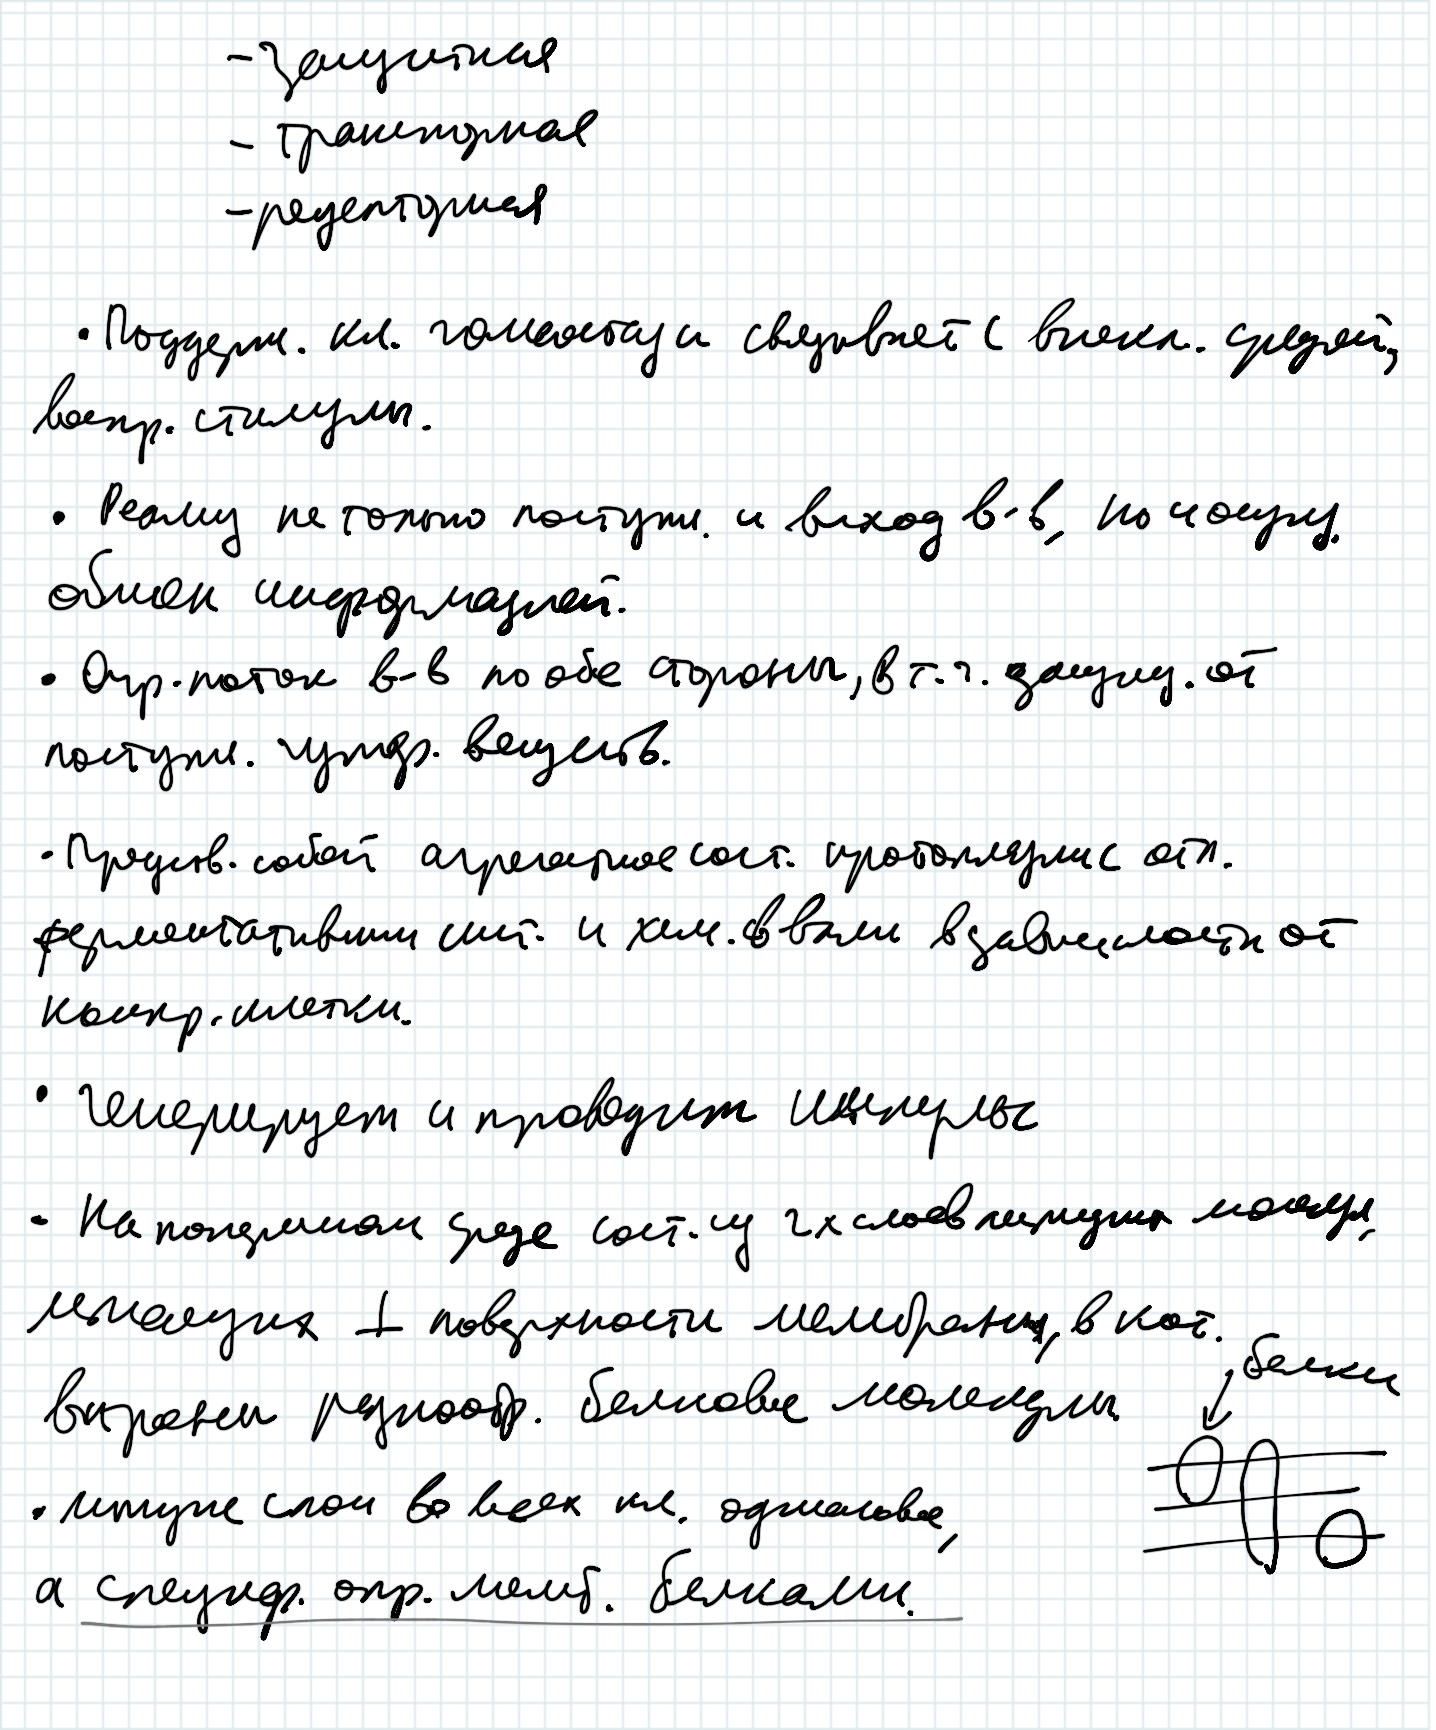 - защитная
- транспортная
- рецепторная
• Поддерж. кл. гомеостаз и связывает с внекл. средой,
воспр. стимулы.
• Реализ не только поступл. и выход в-в, но и осущ.
обмен информацией.
• Огр. поток в-в по обе стороны, в т.ч. защищ. от
поступл. чужер. веществ.
• Предств. собой агрегатное сост. протоплазмы с отл.
ферментативными сист. и хим. св-вами в зависимости от
конкр. клетки.
• Генерирует и проводит импульс
• На поперечном срезе сост. из 2х слоев липидных молекул,
лежащих ⊥ поверхности мембраны, в кот.
встроены разнообр. белковые молекулы.
белки
• Липидные слои во всех кл. одинаковые,
а специф. опр. мемб. белками.